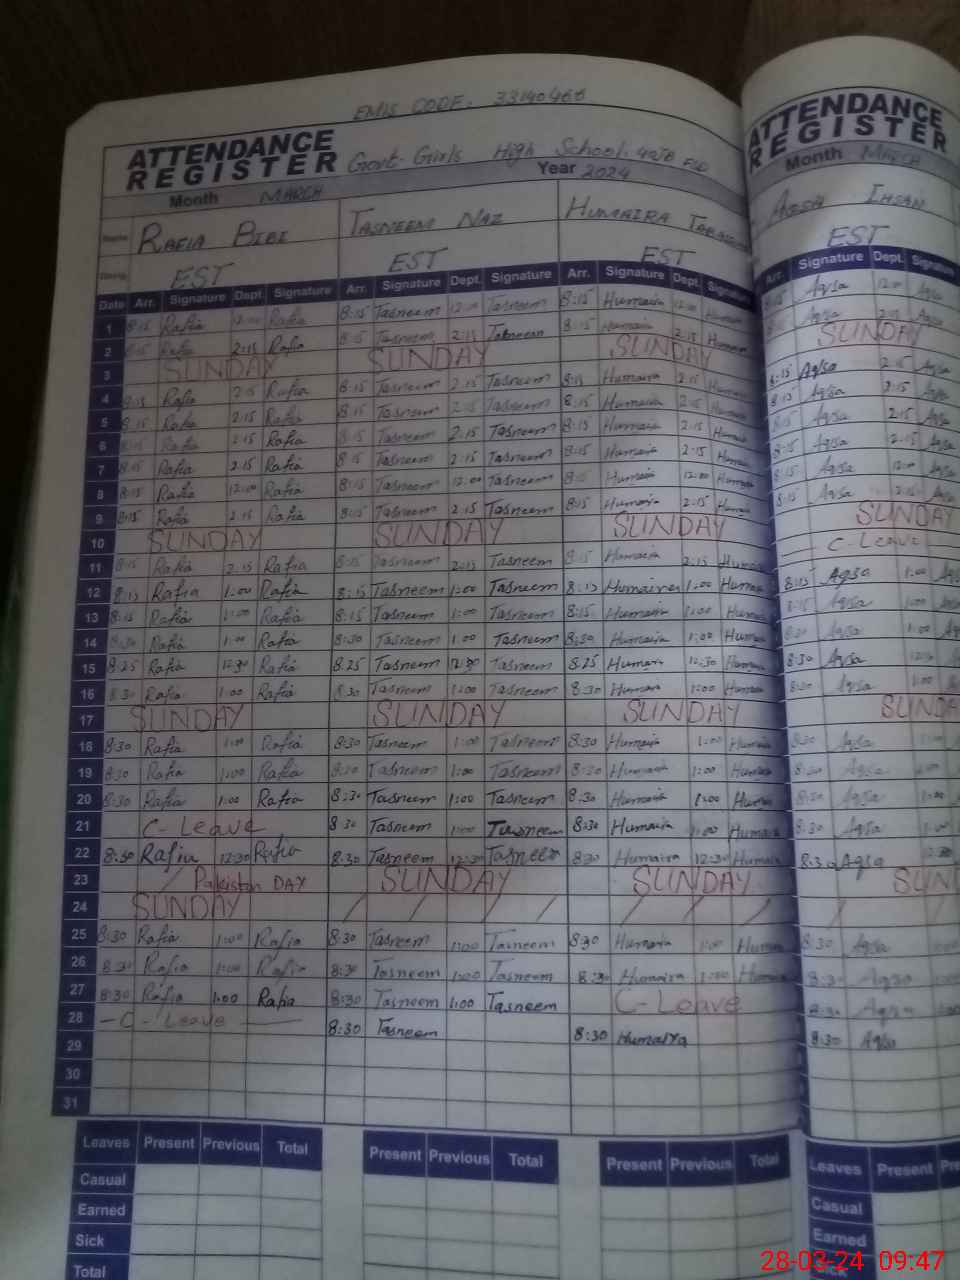 EMIS CODE: 33140466
ATTENDANCE REGISTER
Govt. Girls High School
Month MARCH Year 2024
Name RAFIA BIBI TASNEEM NAZ HUMAIRA
EST EST EST
Date Arr. Signature Dept. Signature Arr. Signature Dept. Signature Arr. Signature Dept. Signature
1 8:15 Rafia 12:00 Rafia 8:15 Tasneem 12:00 Tasneem 8:15 Humaira 12:00
2 8:15 Rafia 2:15 Rafia 8:15 Tasneem 2:15 Tasneem 8:15 Humaira 2:15
3 SUNDAY SUNDAY SUNDAY
4 8:15 Rafia 2:15 Rafia 8:15 Tasneem 2:15 Tasneem 8:15 Humaira 2:15
5 8:15 Rafia 2:15 Rafia 8:15 Tasneem 2:15 Tasneem 8:15 Humaira 2:15
6 8:15 Rafia 2:15 Rafia 8:15 Tasneem 2:15 Tasneem 8:15 Humaira 2:15
7 8:15 Rafia 2:15 Rafia 8:15 Tasneem 2:15 Tasneem 8:15 Humaira 2:15
8 8:15 Rafia 12:00 Rafia 8:15 Tasneem 12:00 Tasneem 8:15 Humaira 12:00
9 8:15 Rafia 2:15 Rafia 8:15 Tasneem 2:15 Tasneem 8:15 Humaira 2:15
10 SUNDAY SUNDAY SUNDAY
11 8:15 Rafia 2:15 Rafia 8:15 Tasneem 2:15 Tasneem 8:15 Humaira 2:15
12 8:15 Rafia 1:00 Rafia 8:15 Tasneem 1:00 Tasneem 8:15 Humaira 1:00
13 8:15 Rafia 1:00 Rafia 8:15 Tasneem 1:00 Tasneem 8:15 Humaira 1:00
14 8:30 Rafia 1:00 Rafia 8:30 Tasneem 1:00 Tasneem 8:30 Humaira 1:00
15 8:25 Rafia 12:30 Rafia 8:25 Tasneem 12:30 Tasneem 8:25 Humaira 12:30
16 8:30 Rafia 1:00 Rafia 8:30 Tasneem 1:00 Tasneem 8:30 Humaira 1:00
17 SUNDAY SUNDAY SUNDAY
18 8:30 Rafia 1:00 Rafia 8:30 Tasneem 1:00 Tasneem 8:30 Humaira 1:00
19 8:30 Rafia 1:00 Rafia 8:30 Tasneem 1:00 Tasneem 8:30 Humaira 1:00
20 8:30 Rafia 1:00 Rafia 8:30 Tasneem 1:00 Tasneem 8:30 Humaira 1:00
21 C-Leave 8:30 Tasneem 1:00 Tasneem 8:30 Humaira 1:00
22 8:30 Rafia 12:30 Rafia 8:30 Tasneem 12:30 Tasneem 8:30 Humaira 12:30
23 Pakistan DAY SUNDAY SUNDAY
24 SUNDAY
25 8:30 Rafia 1:00 Rafia 8:30 Tasneem 1:00 Tasneem 8:30 Humaira 1:00
26 8:30 Rafia 1:00 Rafia 8:30 Tasneem 1:00 Tasneem 8:30 Humaira 1:00
27 8:30 Rafia 1:00 Rafia 8:30 Tasneem 1:00 Tasneem C-Leave
28 C-Leave 8:30 Tasneem 8:30 Humaiya
29
30
31
Leaves Present Previous Total Present Previous Total Present Previous Total
Casual
Earned
Sick
Total
ATTENDANCE REGISTER
Month MARCH
AQSA IHSAN
EST
Arr. Signature Dept. Signature
8:15 Aqsa 12:00 Aqsa
8:15 Aqsa 2:15 Aqsa
SUNDAY
8:15 Aqsa 2:15 Aqsa
8:15 Aqsa 2:15 Aqsa
8:15 Aqsa 2:15 Aqsa
8:15 Aqsa 2:15 Aqsa
8:15 Aqsa 12:00 Aqsa
8:15 Aqsa 2:15 Aqsa
SUNDAY
C-Leave
8:15 Aqsa 1:00
8:15 Aqsa 1:00
8:30 Aqsa 1:00
8:30 Aqsa
8:30 Aqsa 1:00
SUNDAY
8:30 Aqsa
8:30 Aqsa 1:00
8:30 Aqsa 1:00
8:30 Aqsa 1:00
8:30 Aqsa 12:30
8:30 Aqsa
8:30 Aqsa
8:30 Aqsa
8:30 Aqsa
Leaves Present
Casual
Earned
28-03-24 09:47